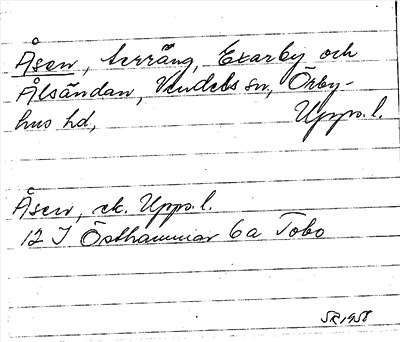 Åsen, terräng, Exarby och
Ålsändan, Vendels sn, Örby-
hus hd, Upps. l.
Åsen, ek. Upps. l.
12 I Östhammar 6a Tobo
SR 1958